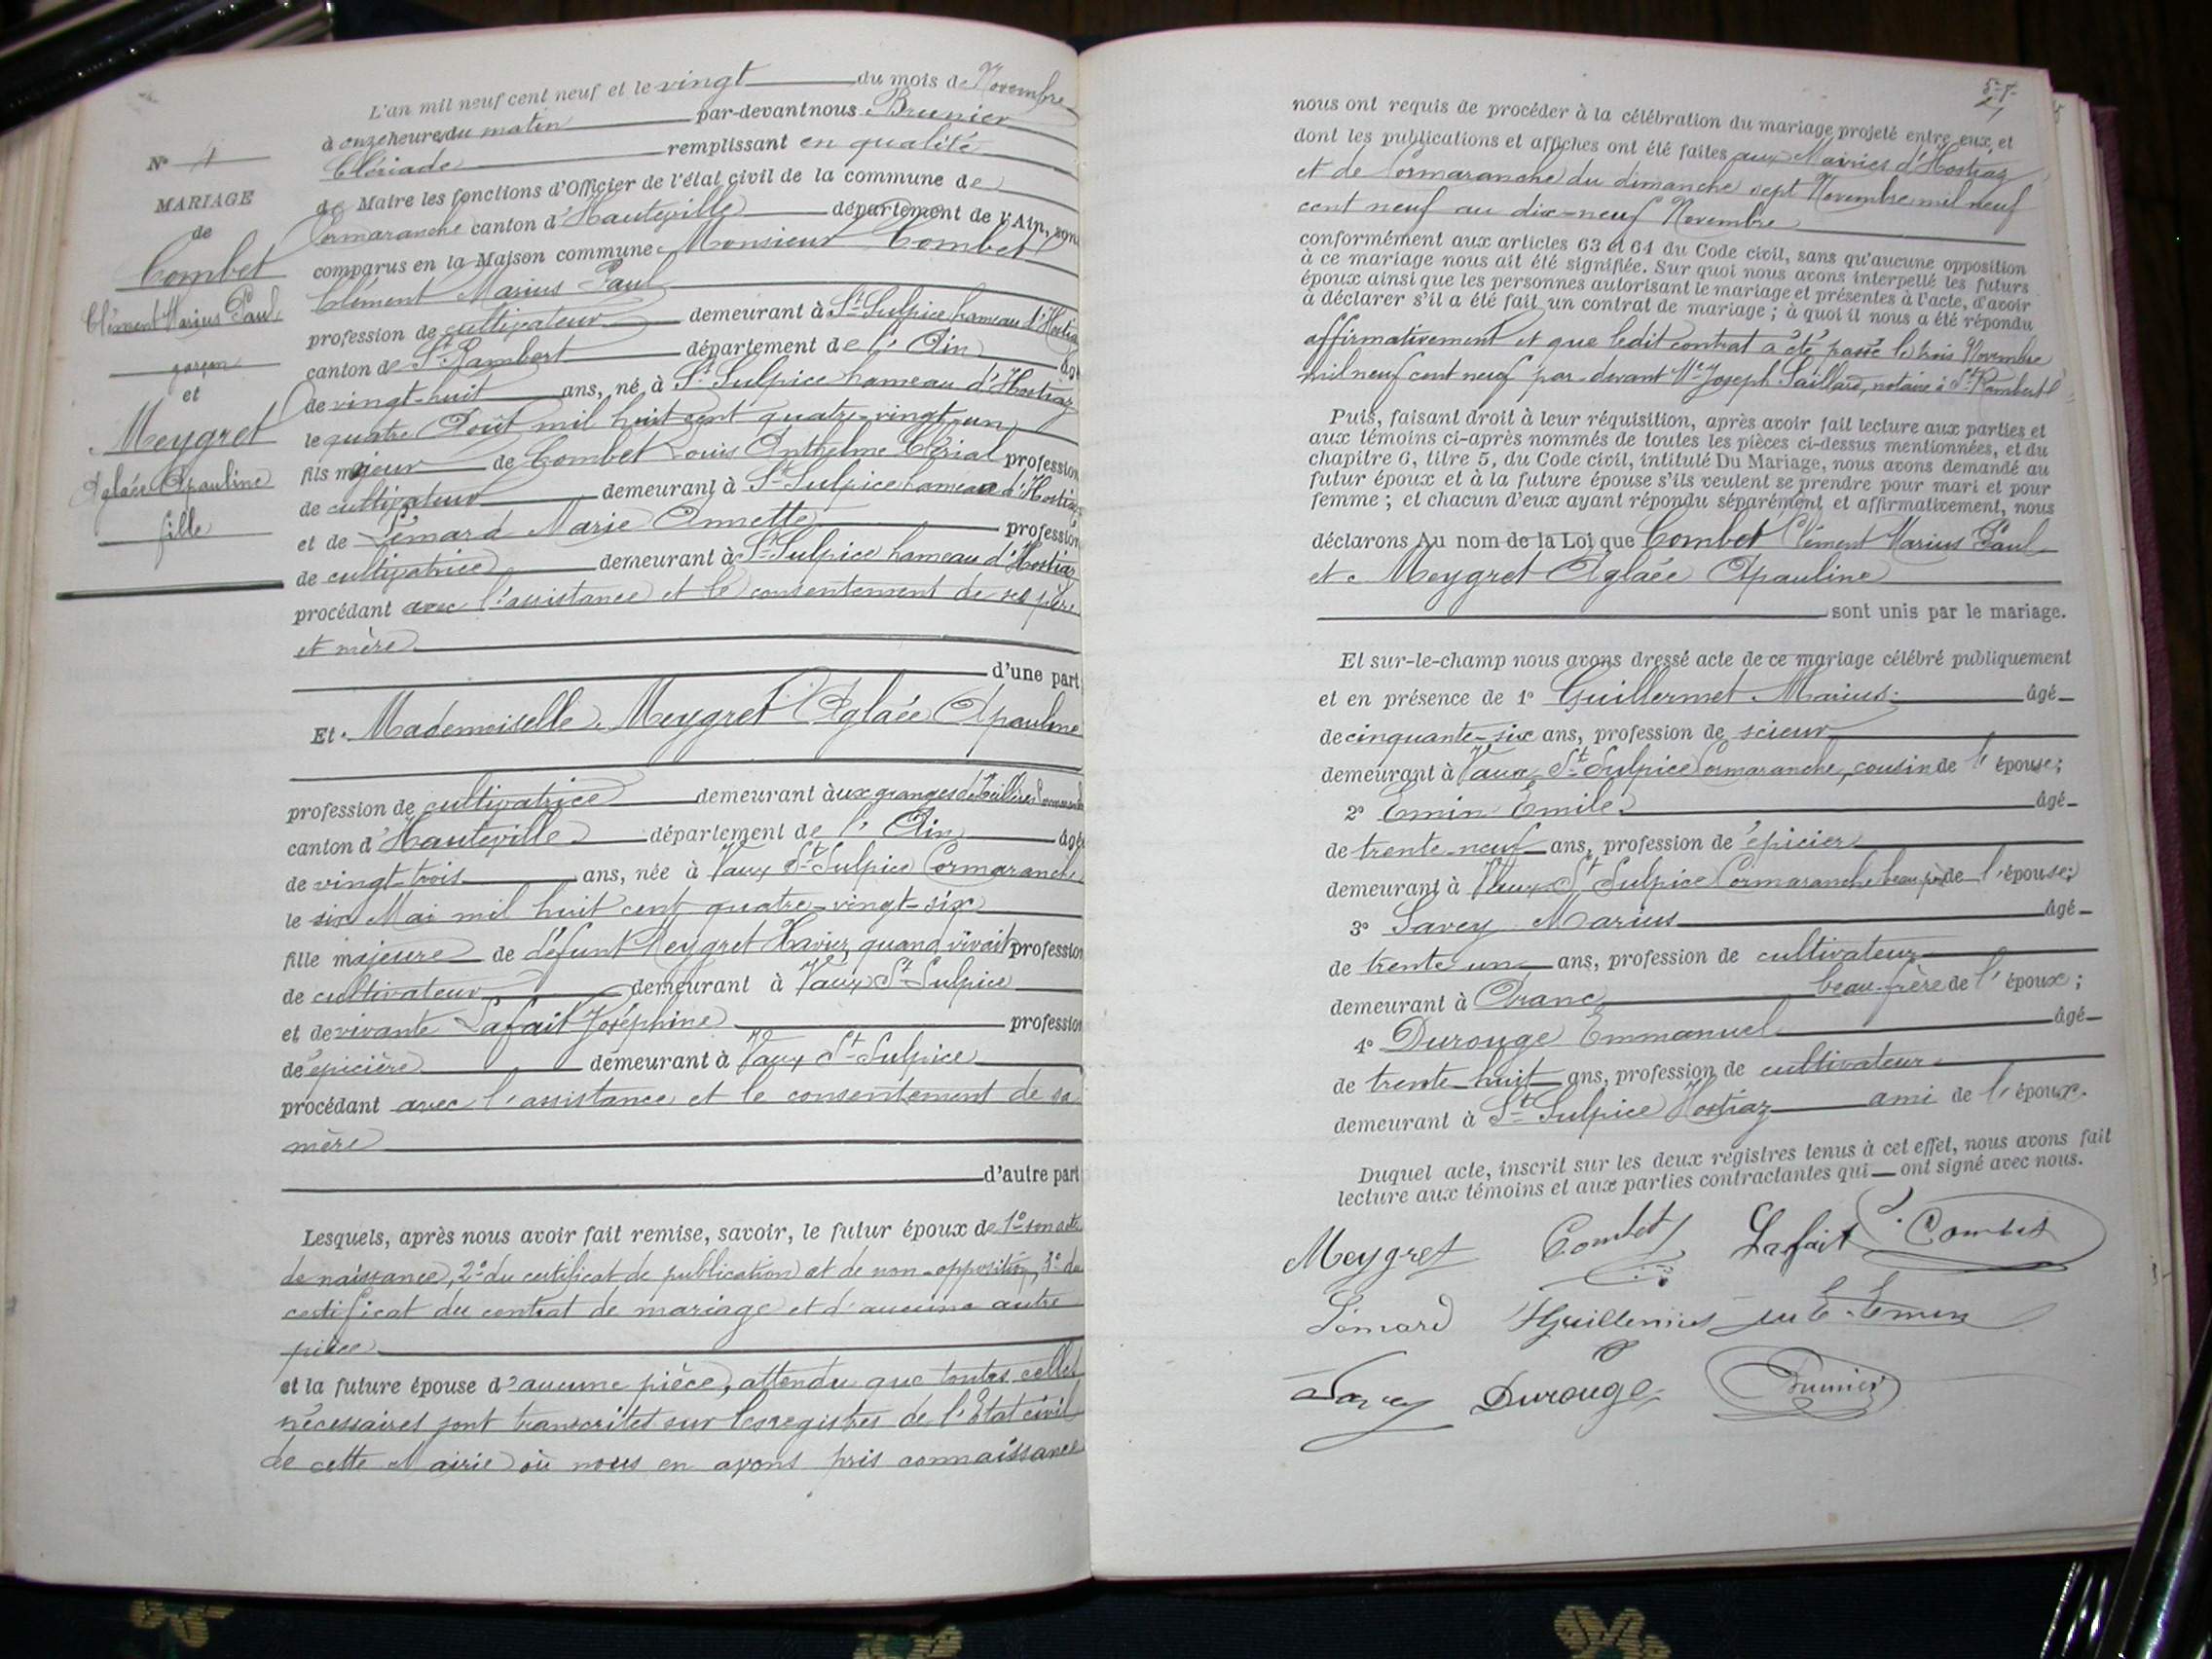 N° 4
MARIAGE
de
Combet
Clément Marius Paul
garçon
et
Meygret
Aglaée Apauline
fille
L'an mil neuf cent neuf et le vingt du mois de Novembre
à onze heures du matin par-devant nous Brunier
Clériade remplissant en qualité
de Maire les fonctions d'Officier de l'état civil de la commune de
Cormaranche canton d'Hauteville département de l'Ain, sont
comparus en la Maison commune Monsieur Combet
Clément Marius Paul
profession de cultivateur demeurant à St Sulpice hameau d'Hostiaz
canton de St Rambert département de l'Ain âgé
de vingt-huit ans, né à St Sulpice hameau d'Hostiaz
le quatre Août mil huit cent quatre-vingt-un
fils majeur de Combet Louis Anthelme Clérial profession
de cultivateur demeurant à St Sulpice hameau d'Hostiaz
et de Lémard Marie Annette profession
de cultivatrice demeurant à St Sulpice hameau d'Hostiaz
procédant avec l'assistance et le consentement de ses père
et mère
d'une part
Et Mademoiselle Meygret Aglaée Apauline
profession de cultivatrice demeurant aux granges
canton d'Hauteville département de l'Ain âgé
de vingt-trois ans, née à Vaux St Sulpice Cormaranche
le six Mai mil huit cent quatre-vingt-six
fille majeure de défunt Meygret Xavier, quand vivait profession
de cultivateur demeurant à Vaux St Sulpice
et de vivante Lafait Joséphine profession
d'épicière demeurant à Vaux St Sulpice
procédant avec l'assistance et le consentement de sa
mère
d'autre part
Lesquels, après nous avoir fait remise, savoir, le futur époux de 1° son acte
de naissance, 2° du certificat de publication et de non-opposition, 3° du
certificat du contrat de mariage et d'aucune autre
pièce
et la future épouse d'aucune pièce, attendu que toutes celles
nécessaires sont transcrites sur les registres de l'Etat civil
de cette Mairie où nous en avons pris connaissance
57
nous ont requis de procéder à la célébration du mariage projeté entre eux, et
dont les publications et affiches ont été faites aux Mairies d'Hostiaz
et de Cormaranche du dimanche sept Novembre mil neuf
cent neuf au dix-neuf Novembre
conformément aux articles 63 et 64 du Code civil, sans qu'aucune opposition
à ce mariage nous ait été signifiée. Sur quoi nous avons interpellé les futurs
époux ainsi que les personnes autorisant le mariage et présentes à l'acte, d'avoir
à déclarer s'il a été fait un contrat de mariage ; à quoi il nous a été répondu
affirmativement et que ledit contrat a été passé le trois Novembre
mil neuf cent neuf par devant Me Joseph Saillard, notaire à St Rambert
Puis, faisant droit à leur réquisition, après avoir fait lecture aux parties et
aux témoins ci-après nommés de toutes les pièces ci-dessus mentionnées, et du
chapitre 6, titre 5, du Code civil, intitulé Du Mariage, nous avons demandé au
futur époux et à la future épouse s'ils veulent se prendre pour mari et pour
femme ; et chacun d'eux ayant répondu séparément et affirmativement, nous
déclarons Au nom de la Loi que Combet Clément Marius Paul
et Meygret Aglaée Apauline
sont unis par le mariage.
Et sur-le-champ nous avons dressé acte de ce mariage célébré publiquement
et en présence de 1° Guillermet Marius âgé
de cinquante-six ans, profession de scieur
demeurant à Vaux St Sulpice Cormaranche, cousin de l'épouse;
2° Emin Emile âgé
de trente-neuf ans, profession d'épicier
demeurant à Vaux St Sulpice Cormaranche beau-père de l'épouse;
3° Savey Marius âgé
de trente un ans, profession de cultivateur
demeurant à Oranc beau-frère de l'époux;
4° Durouge Emmanuel âgé
de trente-huit ans, profession de cultivateur
demeurant à St Sulpice Hostiaz ami de l'époux.
Duquel acte, inscrit sur les deux registres tenus à cet effet, nous avons fait
lecture aux témoins et aux parties contractantes qui ont signé avec nous.
Meygret Combet Lafait Combet
Lémard Emin
Savey Durouge Brunier